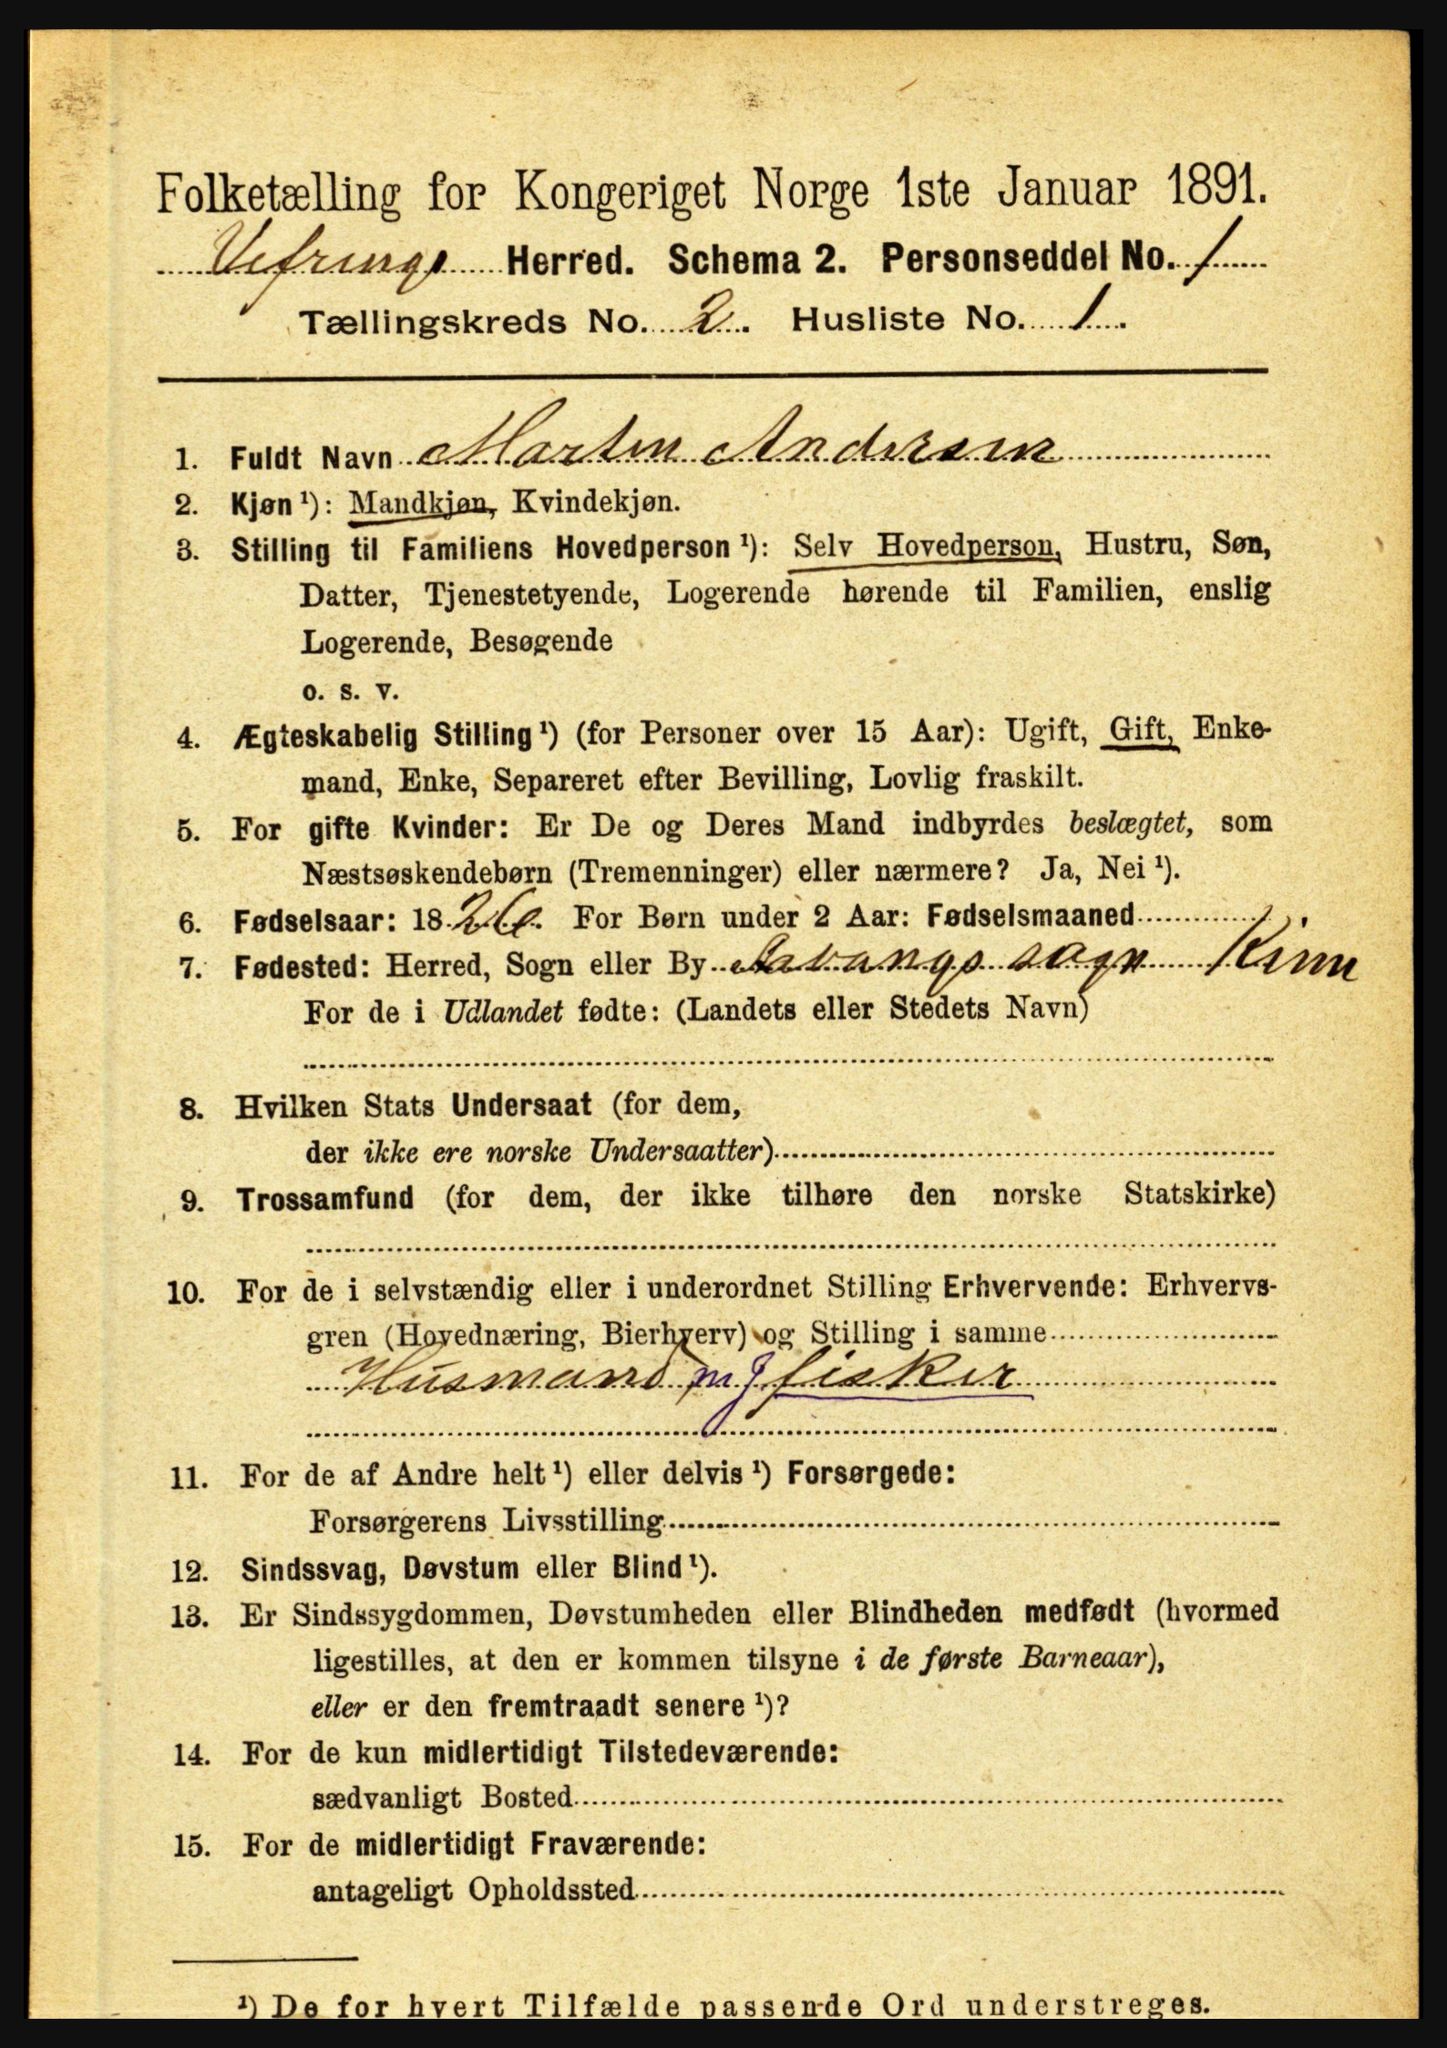 Folketælling for Kongeriget Norge 1ste Januar 1891.
Vefrings Herred. Schema 2. Personseddel No. 1
Tællingskreds No. 2. Husliste No. 1.
1. Fuldt Navn Morten Andersen
2. Kjøn ¹): Mandkjøn, Kvindekjøn.
3. Stilling til Familiens Hovedperson ¹): Selv Hovedperson, Hustru, Søn,
Datter, Tjenestetyende, Logerende hørende til Familien, enslig
Logerende, Besøgende
o. s. v.
4. Ægteskabelig Stilling ¹) (for Personer over 15 Aar): Ugift, Gift, Enke-
mand, Enke, Separeret efter Bevilling, Lovlig fraskilt.
5. For gifte Kvinder: Er De og Deres Mand indbyrdes beslægtet, som
Næstsøskendebørn (Tremenninger) eller nærmere? Ja, Nei ¹).
6. Fødselsaar: 1826. For Børn under 2 Aar: Fødselsmaaned
7. Fødested: Herred, Sogn eller By sogn Kinn
For de i Udlandet fødte: (Landets eller Stedets Navn)
8. Hvilken Stats Undersaat (for dem,
der ikke ere norske Undersaatter)
9. Trossamfund (for dem, der ikke tilhøre den norske Statskirke)
10. For de i selvstændig eller i underordnet Stilling Erhvervende: Erhvervs-
gren (Hovednæring, Bierhverv) og Stilling i samme
Husmand m J fisker
11. For de af Andre helt ¹) eller delvis ¹) Forsørgede:
Forsørgerens Livsstilling
12. Sindssvag, Døvstum eller Blind ¹).
13. Er Sindssygdommen, Døvstumheden eller Blindheden medfødt (hvormed
ligestilles, at den er kommen tilsyne i de første Barneaar),
eller er den fremtraadt senere ¹)?
14. For de kun midlertidigt Tilstedeværende:
sædvanligt Bosted
15. For de midlertidigt Fraværende:
antageligt Opholdssted
¹) De for hvert Tilfælde passende Ord understreges.